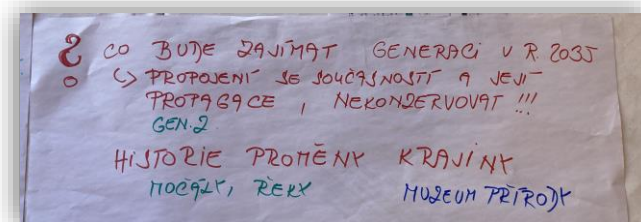 ? CO BUDE ZAJÍMAT GENERACI V R. 2035
↳ PROPOJENÍ SE SOUČASNOSTÍ A JEJÍ
PROPAGACE, NEKONZERVOVAT !!!
GEN. Z
HISTORIE PROMĚNY KRAJINY
MOČÁLY, ŘEKY MUZEUM PŘÍRODY